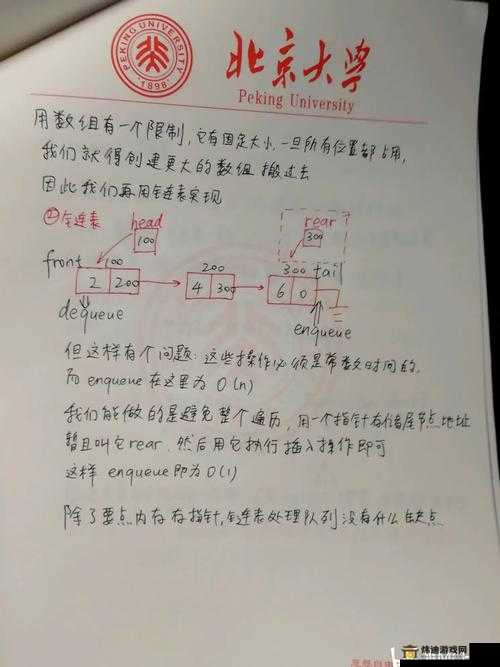 PEKING UNIVERSITY
1898
北京大学
Peking University
用数组有一个限制,它有固定大小,一旦所有位置都占用,
我们就得创建更大的数组 搬过去
因此我们再用链表实现
② 链表
head
100
rear
300
front
100
200
300
tail
2 200
4 300
6 0
dequeue
enqueue
但这样有个问题:这些操作必须是常数时间的.
而 enqueue 在这里为 O(n)
我们能做的是避免整个遍历,用一个指针存储尾节点地址
暂且叫它 rear. 然后用它执行插入操作即可
这样 enqueue 即为 O(1)
除了要点内存存指针,链表处理队列没有什么缺点
炜迪游戏网